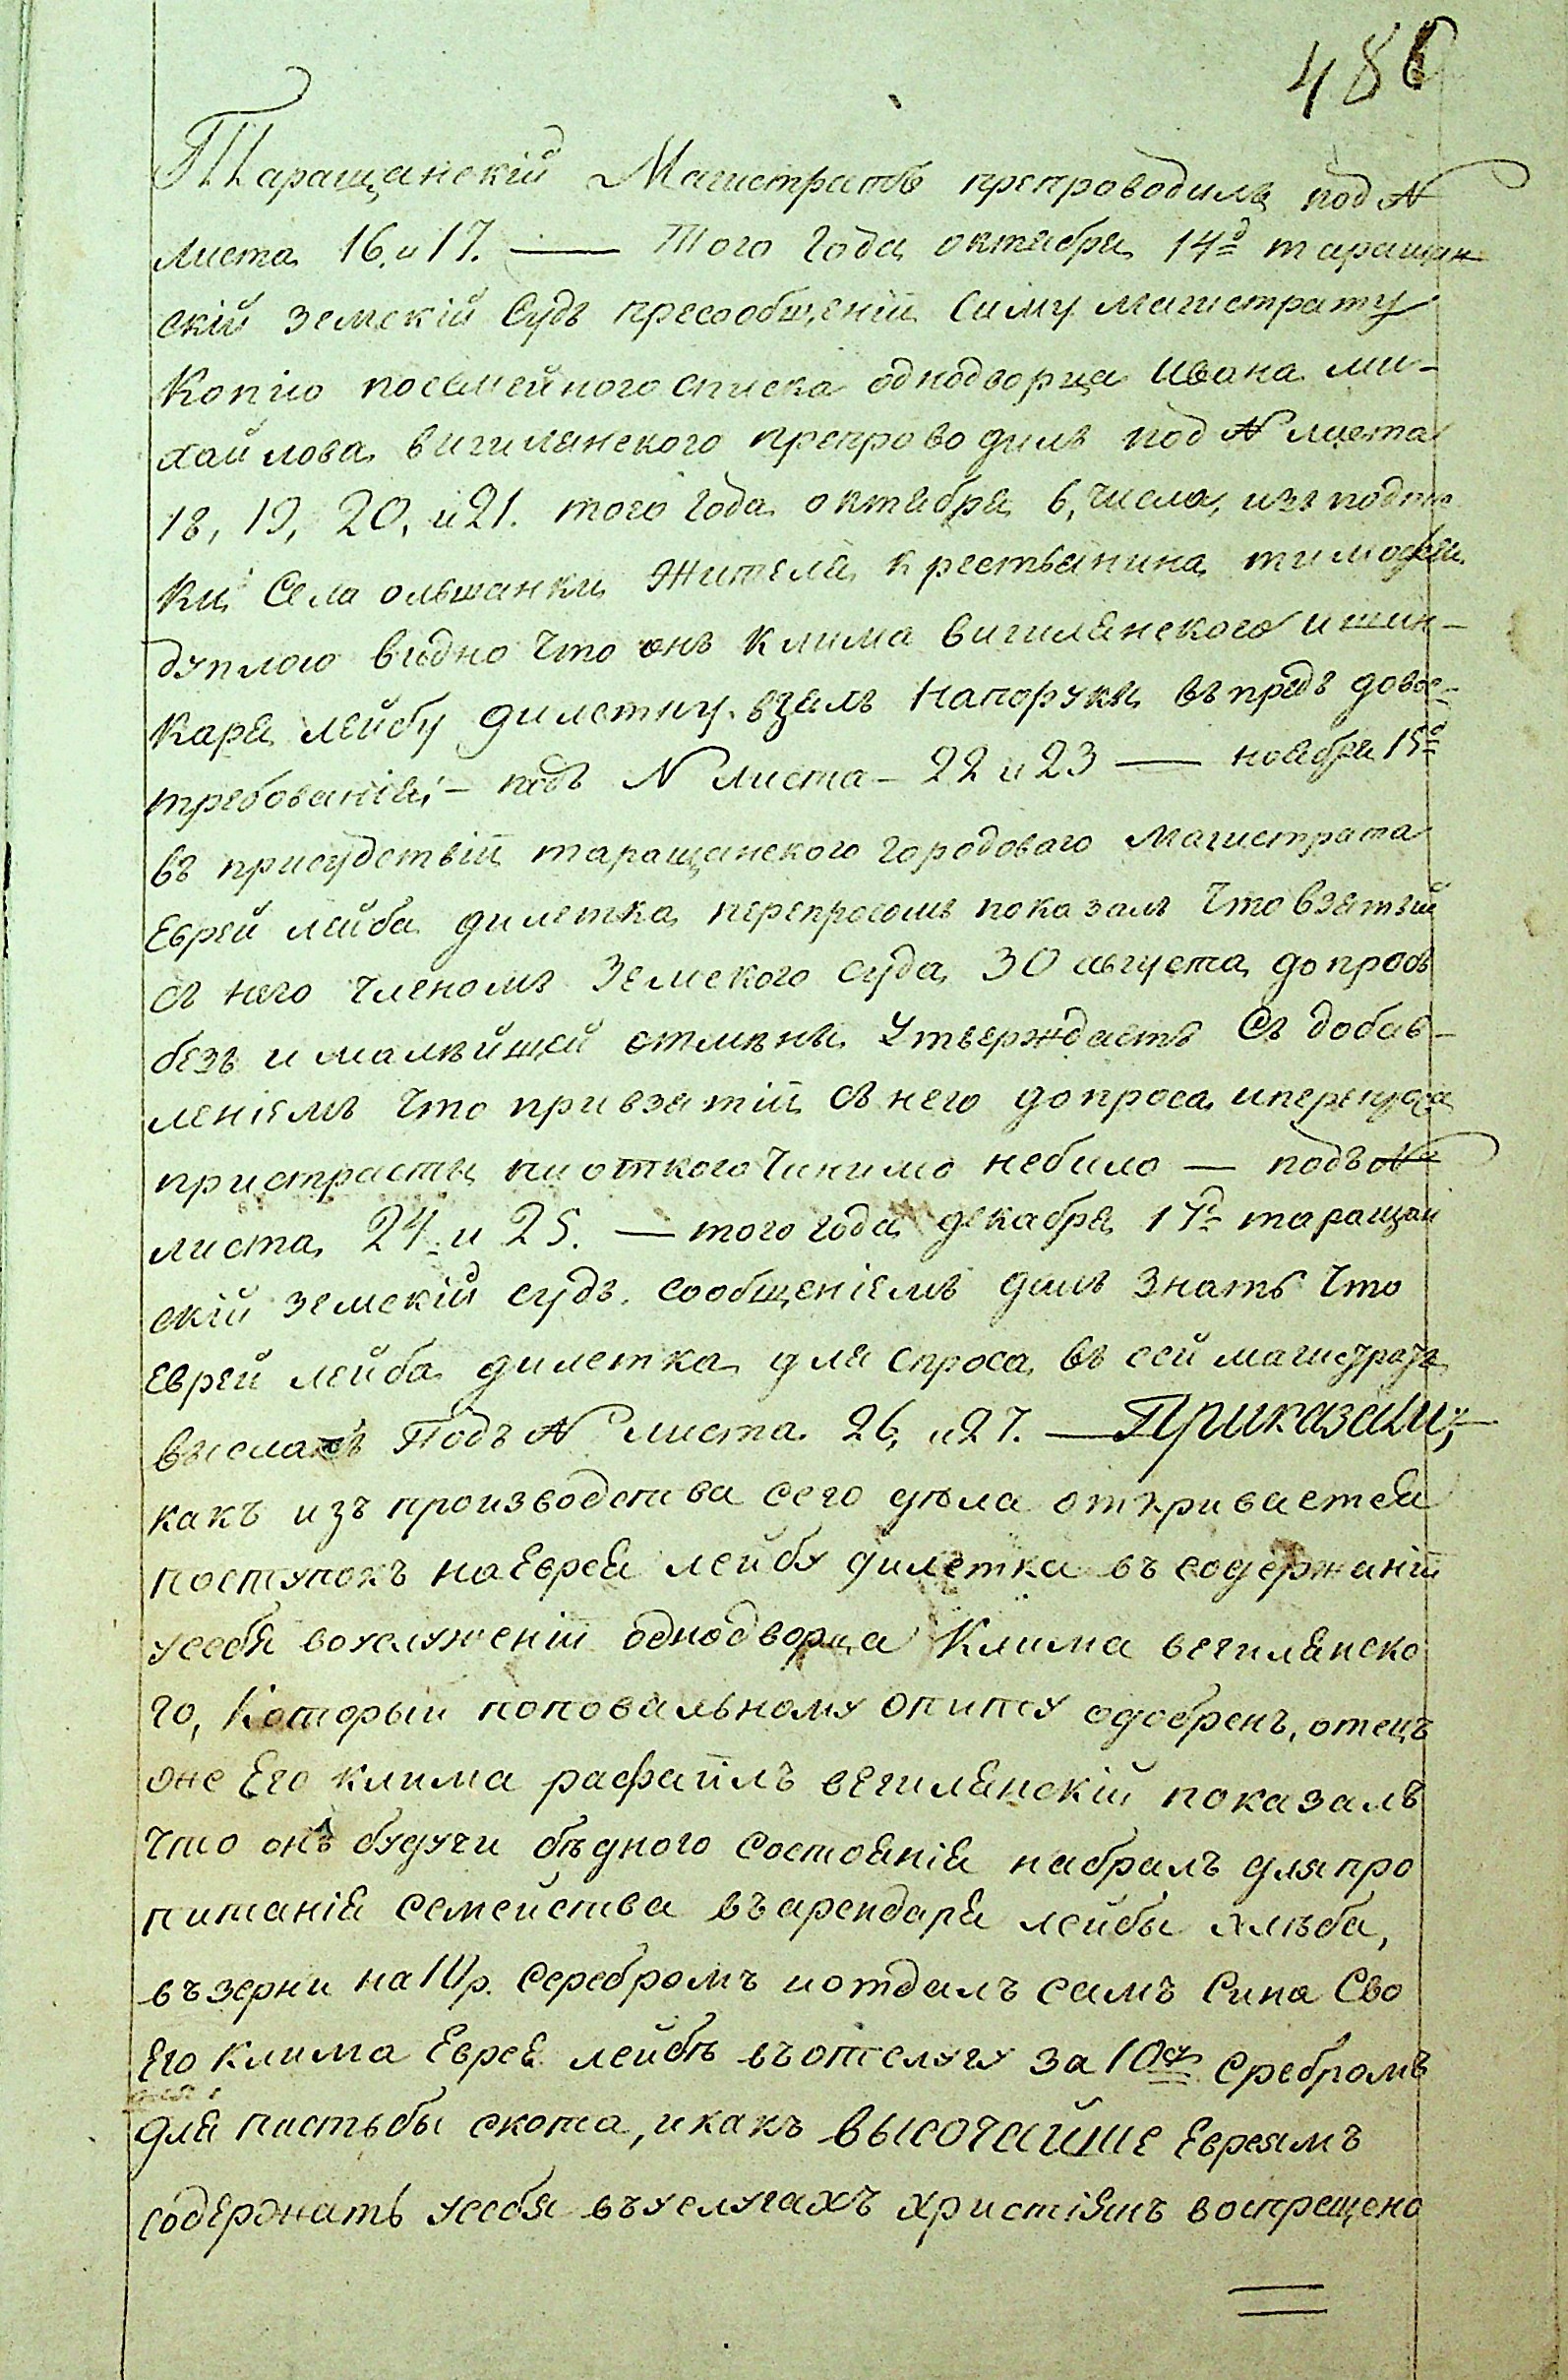 486
Таращанскій Магистратъ препроводилъ под №
листа 16. и 17. — Того Года октября 14д таращан
скій земскій Судъ пресообщеніи Симу магистрату
Копію посемейного списка однодворца Ивана ми-
хайлова вигилянского препроводилъ под № листа
18, 19, 20, и 21. того года октября 6, числа, изъ подпис
ки Села ольшанки Жителя крестьянина тимофея
дуплою видно что онъ клима вигилянского и шин-
каря лейбу дилетку взялъ Напоруки въпредъ довос-
требованія; — подъ № листа — 22 и 23 — ноября 15д
въ присудствіи таращанского городоваго Магистрата
Еврей лейба дилетка перепросомъ показалъ что взятый
съ него членомъ Земского суда 30 августа допросъ
безъ и малѣйшей отмѣны Утверждаетъ Съ добав-
леніемъ что привзятіи съ него допроса иперепроса
пристрасты ниоткого Чинимо небило — подъ №
листа 24. и 25. — того года декабря 17д таращан
скій земскій судъ сообщеніемъ далъ знать что
еврей лейба дилетка для спроса въ сей магистратъ
высланъ Подъ № листа 26, и 27. — Приказали;
какъ изъ производства сего дѣла открывается
поступокъ наеврея лейбу дилетка въ содержаніи
усебя воуслуженіи однодворца Клима вегилянско
го, Который поповальному опипсу одобренъ, отецъ
же Его клима рафаилъ вегилянскій показалъ
что онъ будучи бѣдного состоянія набралъ для про
питанія семейства въарендаря лейбы хлѣба,
въ зерни на 10 р. серебромъ иотдалъ самъ Сина Сво
Его клима Еврея лейбѣ въотслугу за 10ть сребромъ
для пастьбы скота, икакъ высочайше Евреямъ
содержать усебя въуслугахъ христіянъ воспрещено